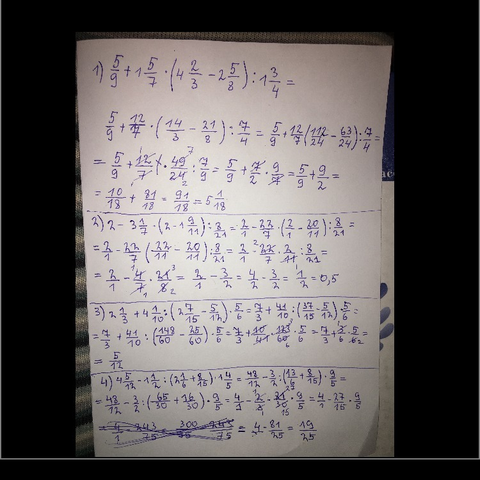 1) 5/9 + 1 5/7 · (4 2/3 - 2 5/8) : 1 3/4 =
5/9 + 12/7 · (14/3 - 21/8) : 7/4 = 5/9 + 12/7 (112/24 - 63/24) : 7/4 =
= 5/9 + 12/7 · 49/24 : 7/9 = 5/9 + 7/2 · 9/7 = 5/9 + 9/2 =
= 10/18 + 81/18 = 91/18 = 5 1/18
2) 2 - 3 1/7 · (2 - 1 9/11) : 8/21 = 2/1 - 22/7 (2/1 - 20/11) : 8/21 =
= 2/1 - 22/7 (22/11 - 20/11) : 8/21 = 2/1 - 22/7 · 2/11 : 8/21 =
= 2/1 - 4/7 · 21/8 = 2/1 - 3/2 = 4/2 - 3/2 = 1/2 = 0,5
3) 2 1/3 + 4 1/10 : (2 7/15 - 5/12) · 5/6 = 7/3 + 41/10 : (37/15 - 5/12) · 5/6 =
= 7/3 + 41/10 : (148/60 - 25/60) · 5/6 = 7/3 + 10/41 · 123/60 · 5/6 = 7/3 + · 5/6 =
= 5/12
4) 4 5/12 - 1 1/2 : (2 1/6 + 8/15) · 1 4/5 = 48/12 - 3/2 : (13/6 + 8/15) · 9/5 =
= 48/12 - 3/2 : (65/30 + 16/30) · 9/5 = 4/1 - 31/30 · 9/5 = 4/1 - 27/15 · 9/5
= 4 - 81/25 = 19/25